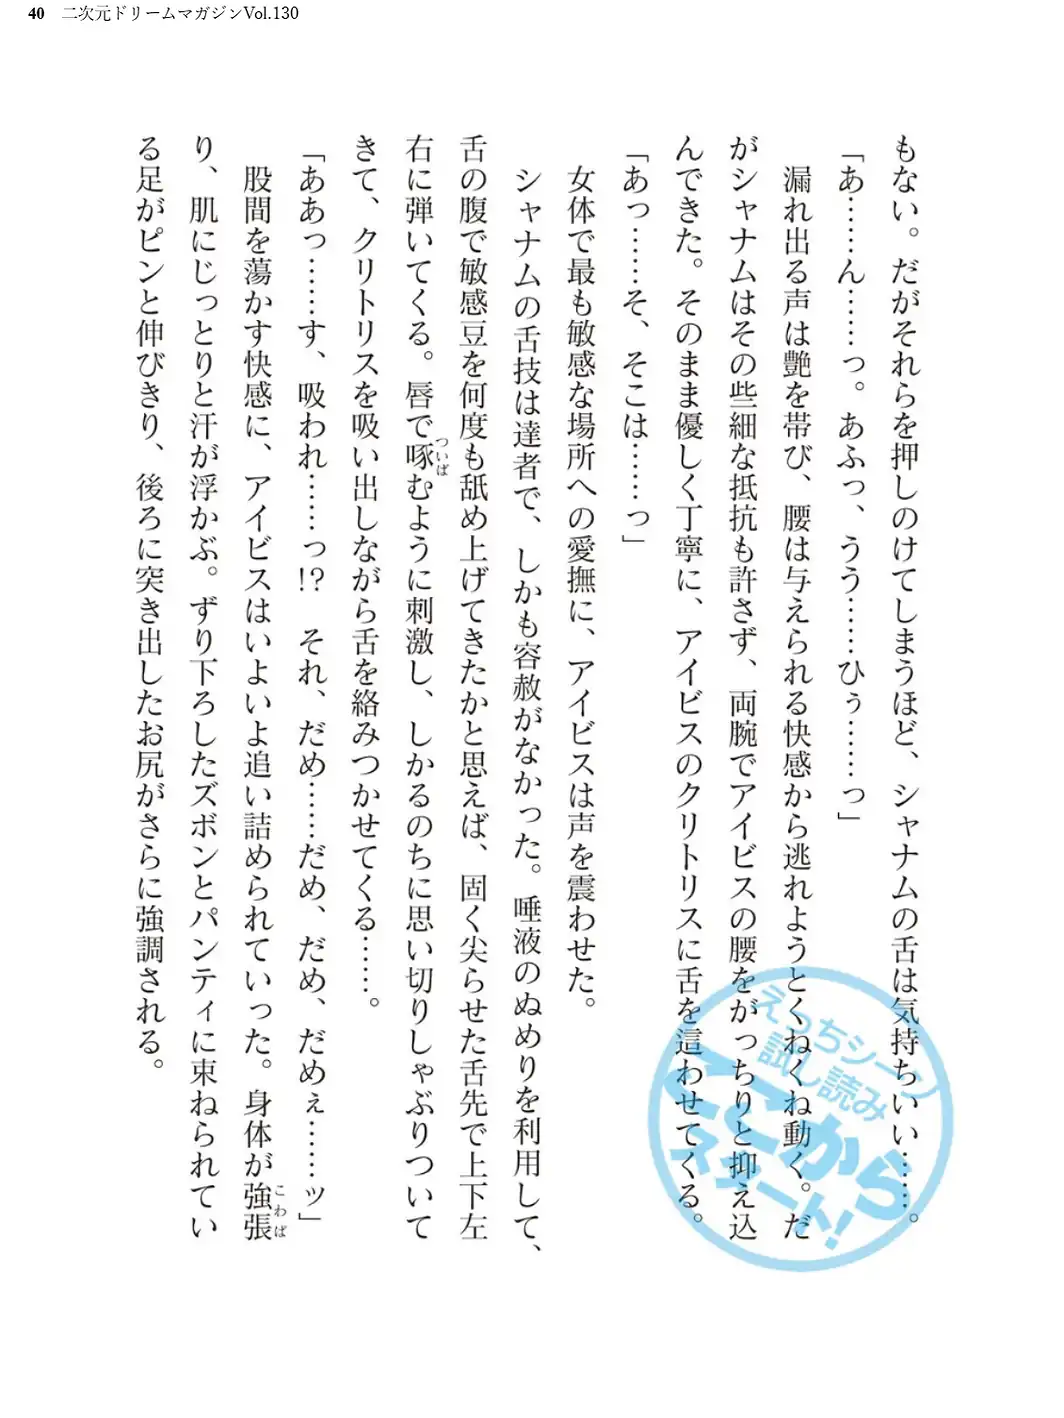 40 二次元ドリームマガジンVol.130
もない。だがそれらを押しのけてしまうほど、シャナムの舌は気持ちいい……。
「あ……ん……っ。あふっ、うう……ひぅ……っ」
　漏れ出る声は艶を帯び、腰は与えられる快感から逃れようとくねくね動く。だ
がシャナムはその些細な抵抗も許さず、両腕でアイビスの腰をがっちりと抑え込
んできた。そのまま優しく丁寧に、アイビスのクリトリスに舌を這わせてくる。
「あっ……そ、そこは……っ」
　女体で最も敏感な場所への愛撫に、アイビスは声を震わせた。
　シャナムの舌技は達者で、しかも容赦がなかった。唾液のぬめりを利用して、
舌の腹で敏感豆を何度も舐め上げてきたかと思えば、固く尖らせた舌先で上下左
右に弾いてくる。唇で啄むように刺激し、しかるのちに思い切りしゃぶりついて
ついば
きて、クリトリスを吸い出しながら舌を絡みつかせてくる……。
「ああっ……す、吸われ……っ!?　それ、だめ……だめ、だめ、だめぇ……ッ」
　股間を蕩かす快感に、アイビスはいよいよ追い詰められていった。身体が強張
こわば
り、肌にじっとりと汗が浮かぶ。ずり下ろしたズボンとパンティに束ねられてい
る足がピンと伸びきり、後ろに突き出したお尻がさらに強調される。
えっちシーン
試し読み
ここから
スタート!